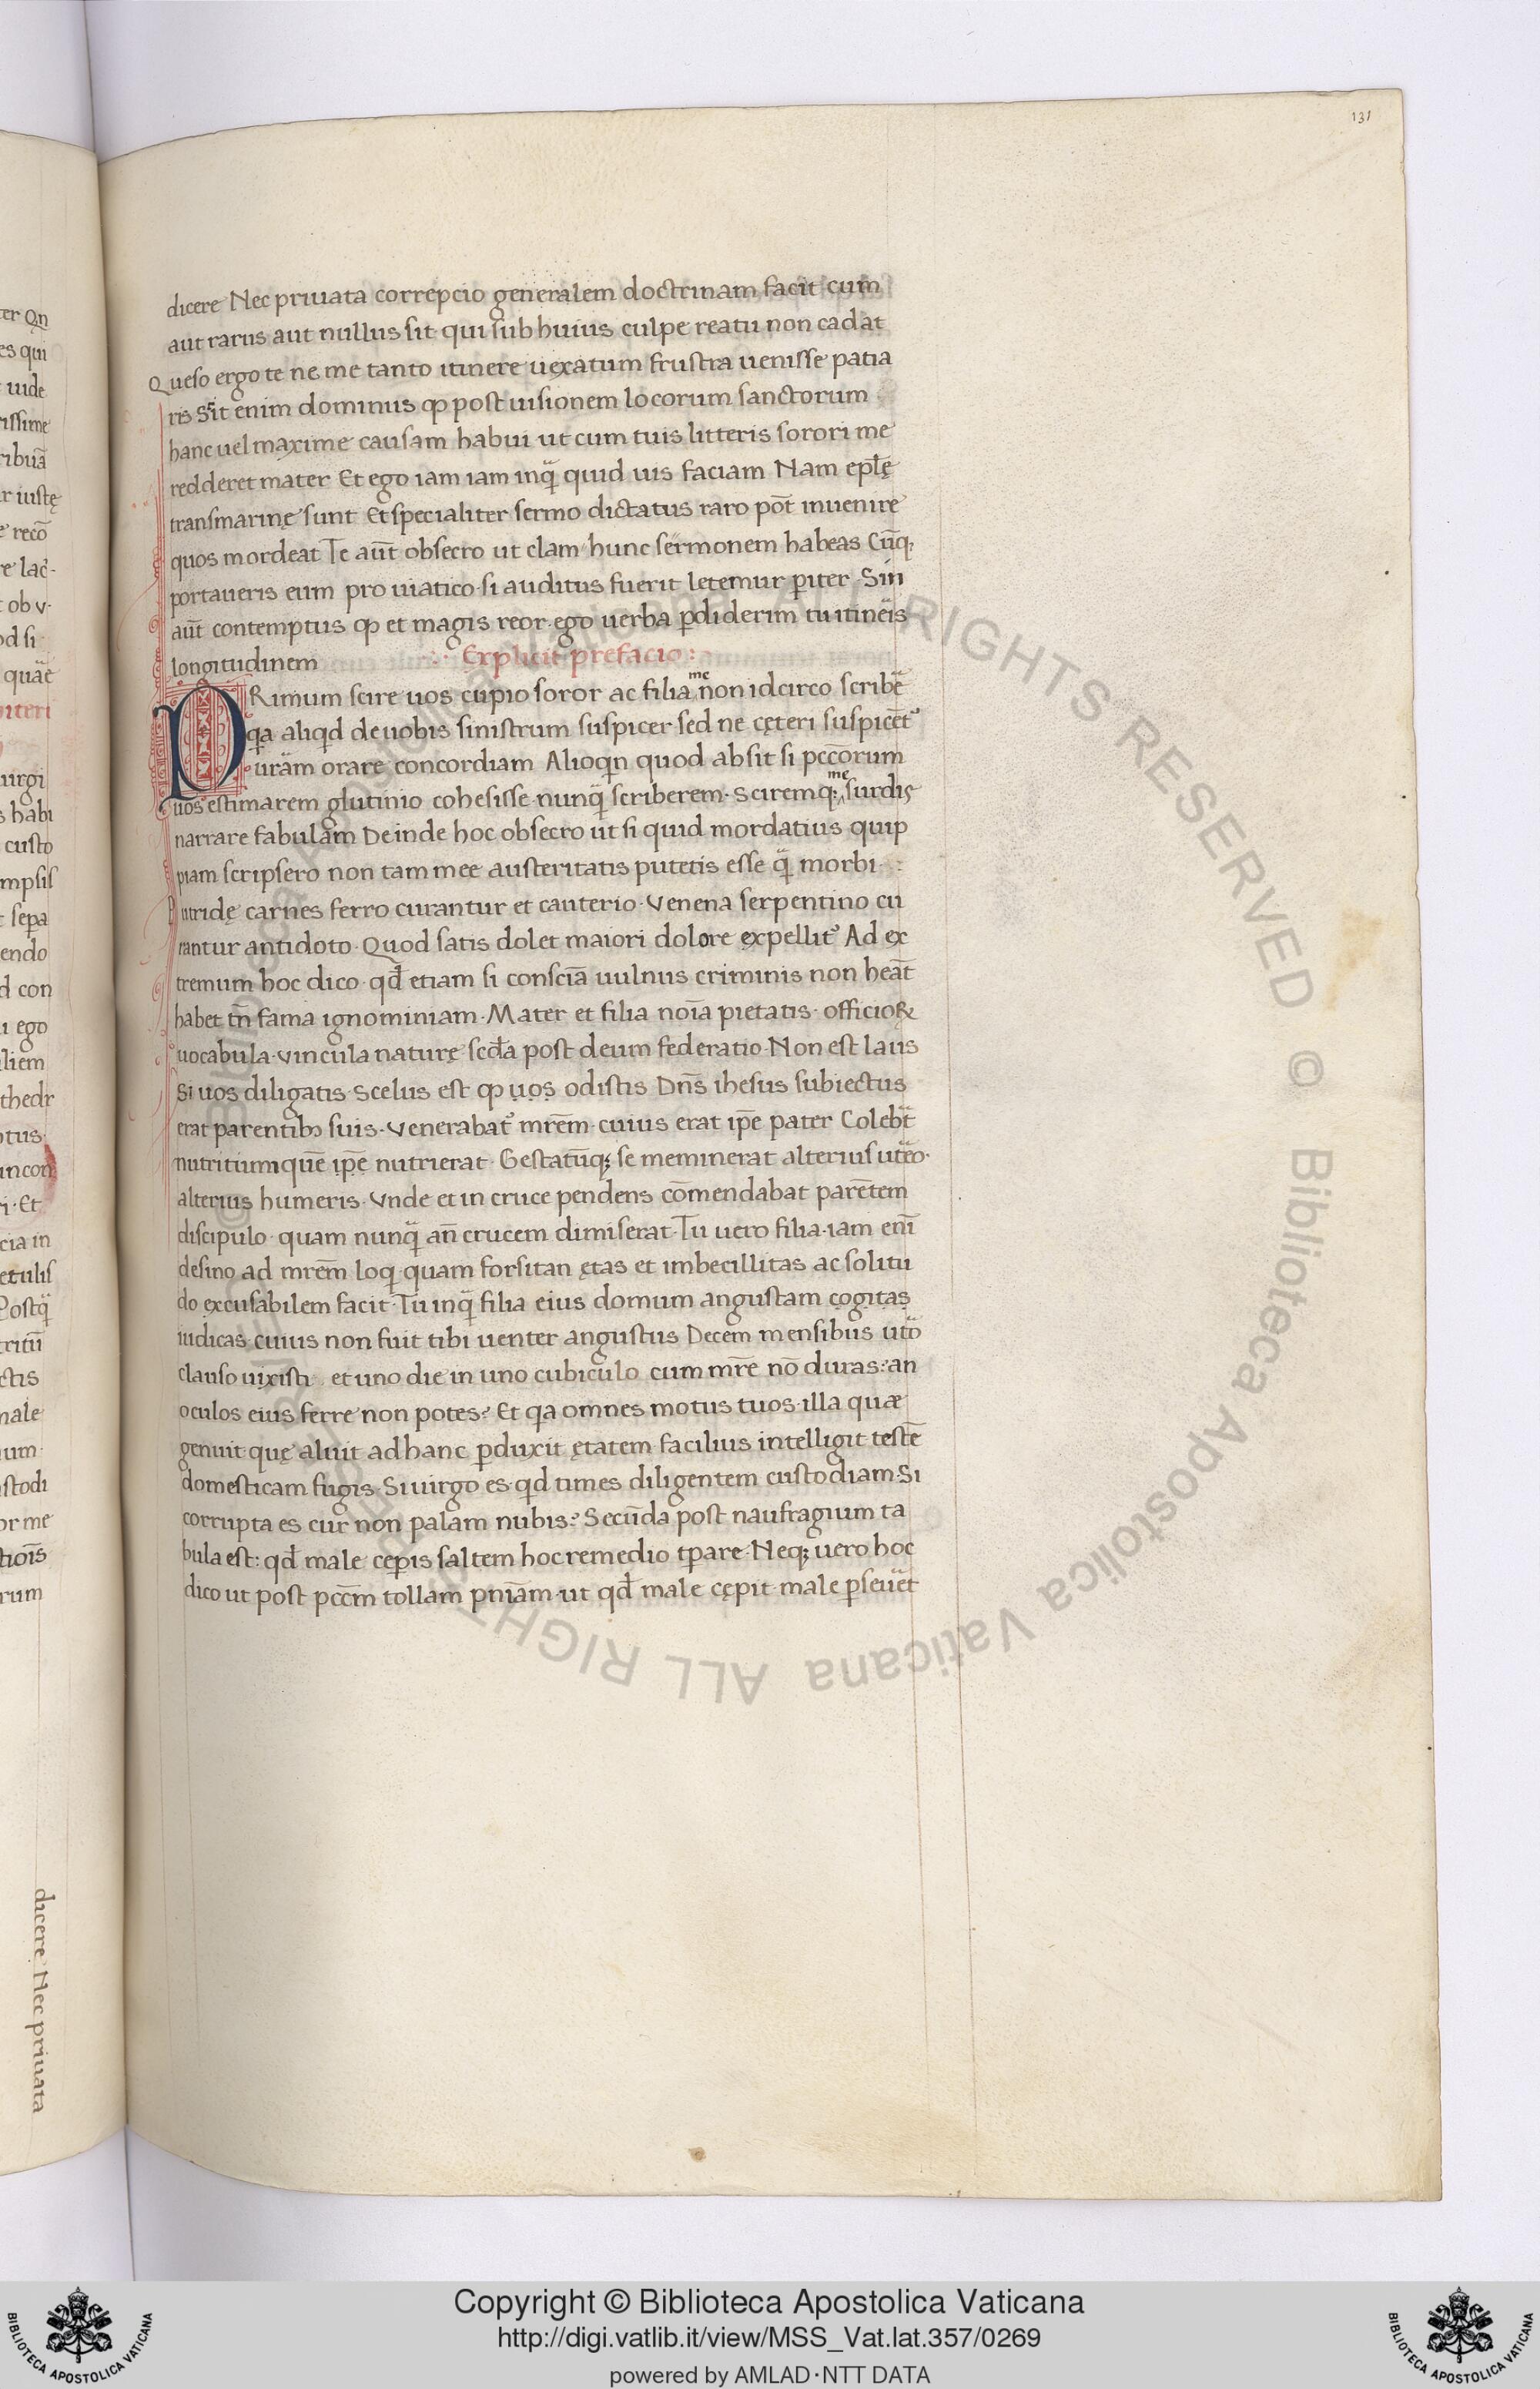 131
dicere Nec priuata correpcio generalem doctrinam facit cum
aut rarus aut nullus sit qui sub huius culpe reatu non cadat
Queso ergo te ne me tanto itinere uexatum frustra uenisse patia
ris Sit enim dominus ꝙ post uisionem locorum sanctorum
hanc uel maxime causam habui ut cum tuis litteris sorori me
redderet mater Et ego iam iam inqͣ quid uis faciam Nam epl̄ę
transmarinę sunt Et specialiter sermo dictatus raro pōt inuenire
quos mordeat Te aūt obsecro ut clam hunc sermonem habeas Cūqꝫ
portaueris eum pro uiatico· si auditus fuerit letemur ꝑiter· Sin
aūt contemptus ꝙ et magis reor· ego uerba ꝑdiderim tu itineͣis
longitudinem Explicit prefacio:
PRimum scire uos cupio soror ac filia me non idcirco scribē̄
qa aliqd de uobis sinistrum suspicer sed ne cęteri suspicēt᷒
uram orare concordiam Alioqn quod absit si pccōrum
uos estimarem glutinio cohesisse· nunqͣ scriberem· Sciremqꝫ me surdis
narrare fabulam Deinde hoc obsecro ut si quid mordatius quip
piam scripsero non tam mee austeritatis putetis esse qͣ morbi
Putridę carnes ferro curantur et cauterio· Venena serpentino cu
rantur antidoto· Quod satis dolet maiori dolore expellit᷒ Ad ex
tremum hoc dico· qđ etiam si consciā uulnus criminis non heāt
habet tn̄ fama ignominiam· Mater et filia noīa pietatis· officioꝝ
uocabula· Vincula naturę scđa post deum federatio· Non est laus
Si uos diligatis· Scelus est ꝙ uos odistis Dn̄s ihesus subiectus
erat parentibꝫ suis· Venerabat᷒ mrēm· cuius erat ip̄e pater Colebͣt
nutritium quē ip̄e nutrierat· Gestatūqꝫ se meminerat alterius uteͣo·
alterius humeris· Vnde et in cruce pendens cōmendabat parētem
discipulo· quam nunqͣ an̄ crucem dimiserat· Tu uero filia· iam enī
desino ad mrēm loqͥ· quam forsitan ętas et imbecillitas ac solitu
do excusabilem facit· Tu inqͣ filia eius domum angustam cogitas
iudicas· cuius non fuit tibi uenter angustus Decem mensibus utͣo
clauso uixisti· et uno die in uno cubiculo cum mr̄e nō duras? an
oculos eius ferre non potes? Et qa omnes motus tuos· illa quæ
genuit· quę aluit ad hanc ꝑduxit ętatem facilius intelligit testē
domesticam fugis· Si uirgo es· qd times diligentem custodiam· Si
corrupta es cur non palam nubis? Secūda post naufragium ta
bula est: qđ male ceꝑis saltem hoc remedio tꝑare· Neqꝫ uero hoc
dico ut post pcc̄m tollam pniām· ut qđ male cępit· male ꝑseuͣet
dicere Nec priuata
Copyright © Biblioteca Apostolica Vaticana
http://digi.vatlib.it/view/MSS_Vat.lat.357/0269
powered by AMLAD·NTT DATA
BIBLIOTECA APOSTOLICA VATICANA
BIBLIOTECA APOSTOLICA VATICANA